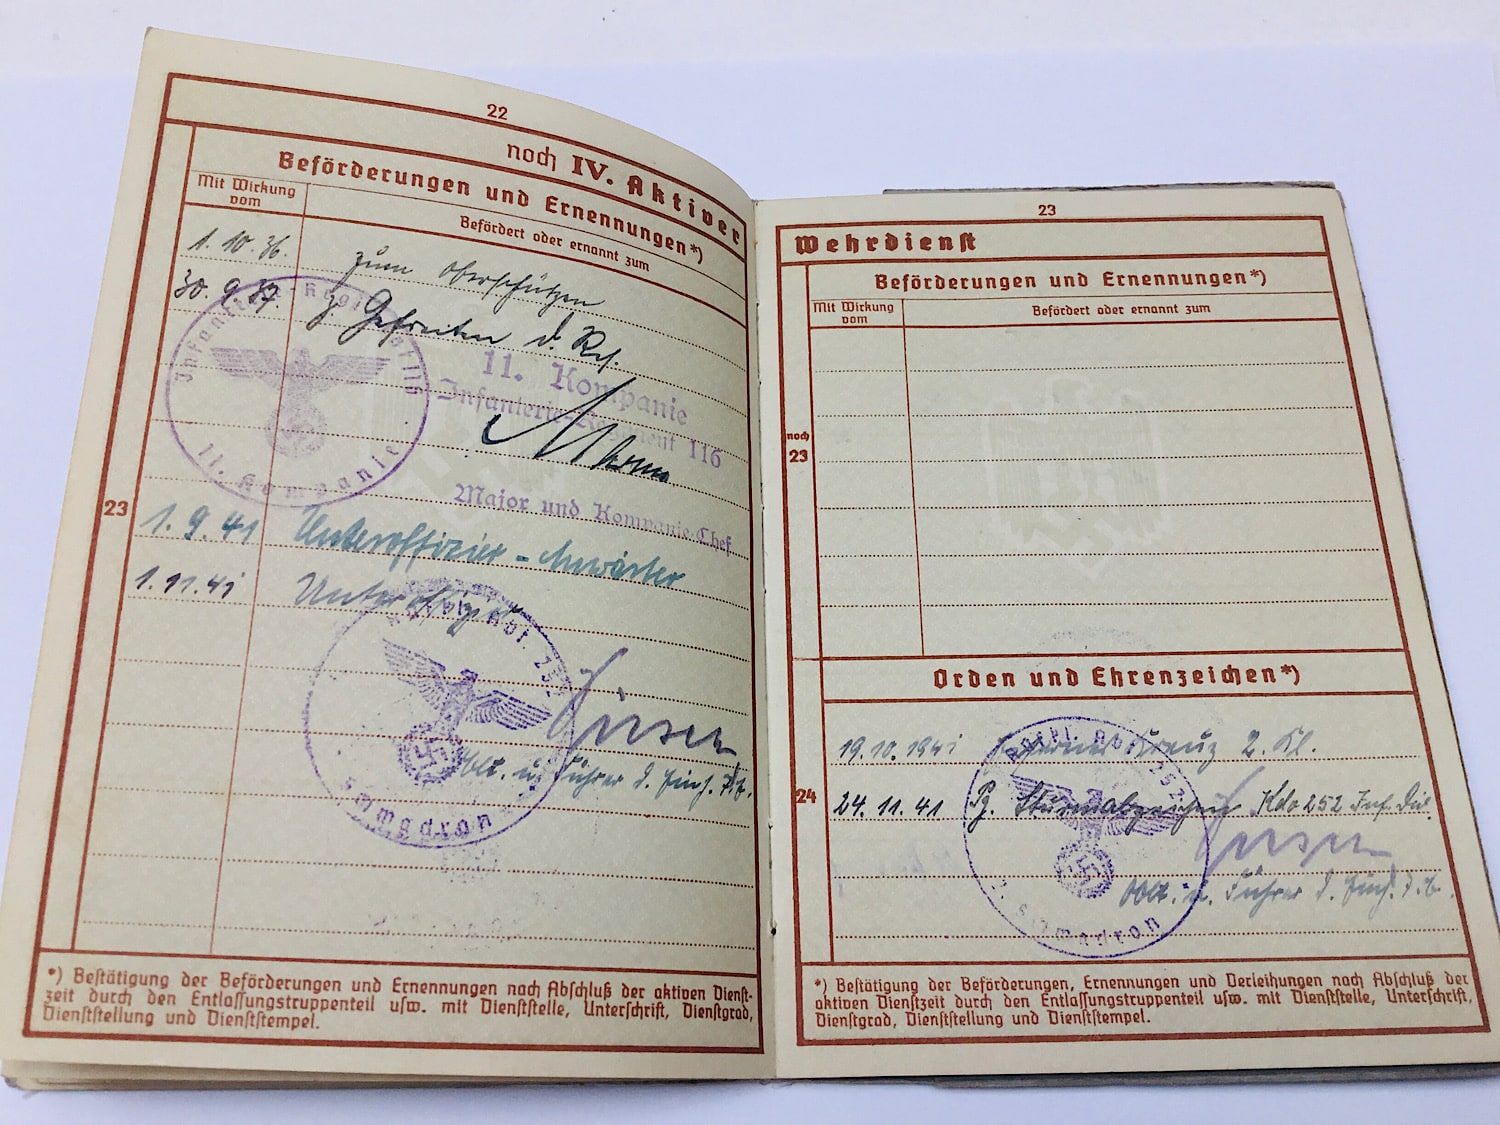 22
noch IV. Aktiver
Beförderungen und Ernennungen*)
Mit Wirkung vom
Befördert oder ernannt zum
1. 10. 36. zum Oberschützen
30. 9. 37. z. Gefreiten d. Rs.
Infanterie-Regiment 116
11. Kompanie
11. Kompanie
Infanterie-Regiment 116
Major und Kompanie-Chef
23
1. 9. 41 Unteroffizier-Anwärter
1. 11. 41 Unteroffizier
Abt. 252
Schwadron
Oblt. u. Führer d. Einh.
*) Bestätigung der Beförderungen und Ernennungen nach Abschluß der aktiven Dienst-
zeit durch den Entlassungstruppenteil usw. mit Dienststelle, Unterschrift, Dienstgrad,
Dienststellung und Dienststempel.
23
Wehrdienst
Beförderungen und Ernennungen*)
Mit Wirkung vom
Befördert oder ernannt zum
noch
23
Orden und Ehrenzeichen*)
19. 10. 1941 Eisernes Kreuz 2. Kl.
24
24. 11. 41 Sturmabzeichen Kdo 252 Inf. Div
Abt. 252
2. Schwadron
Oblt. u. Führer d. Einh.
*) Bestätigung der Beförderungen, Ernennungen und Verleihungen nach Abschluß der
aktiven Dienstzeit durch den Entlassungstruppenteil usw. mit Dienststelle, Unterschrift,
Dienstgrad, Dienststellung und Dienststempel.